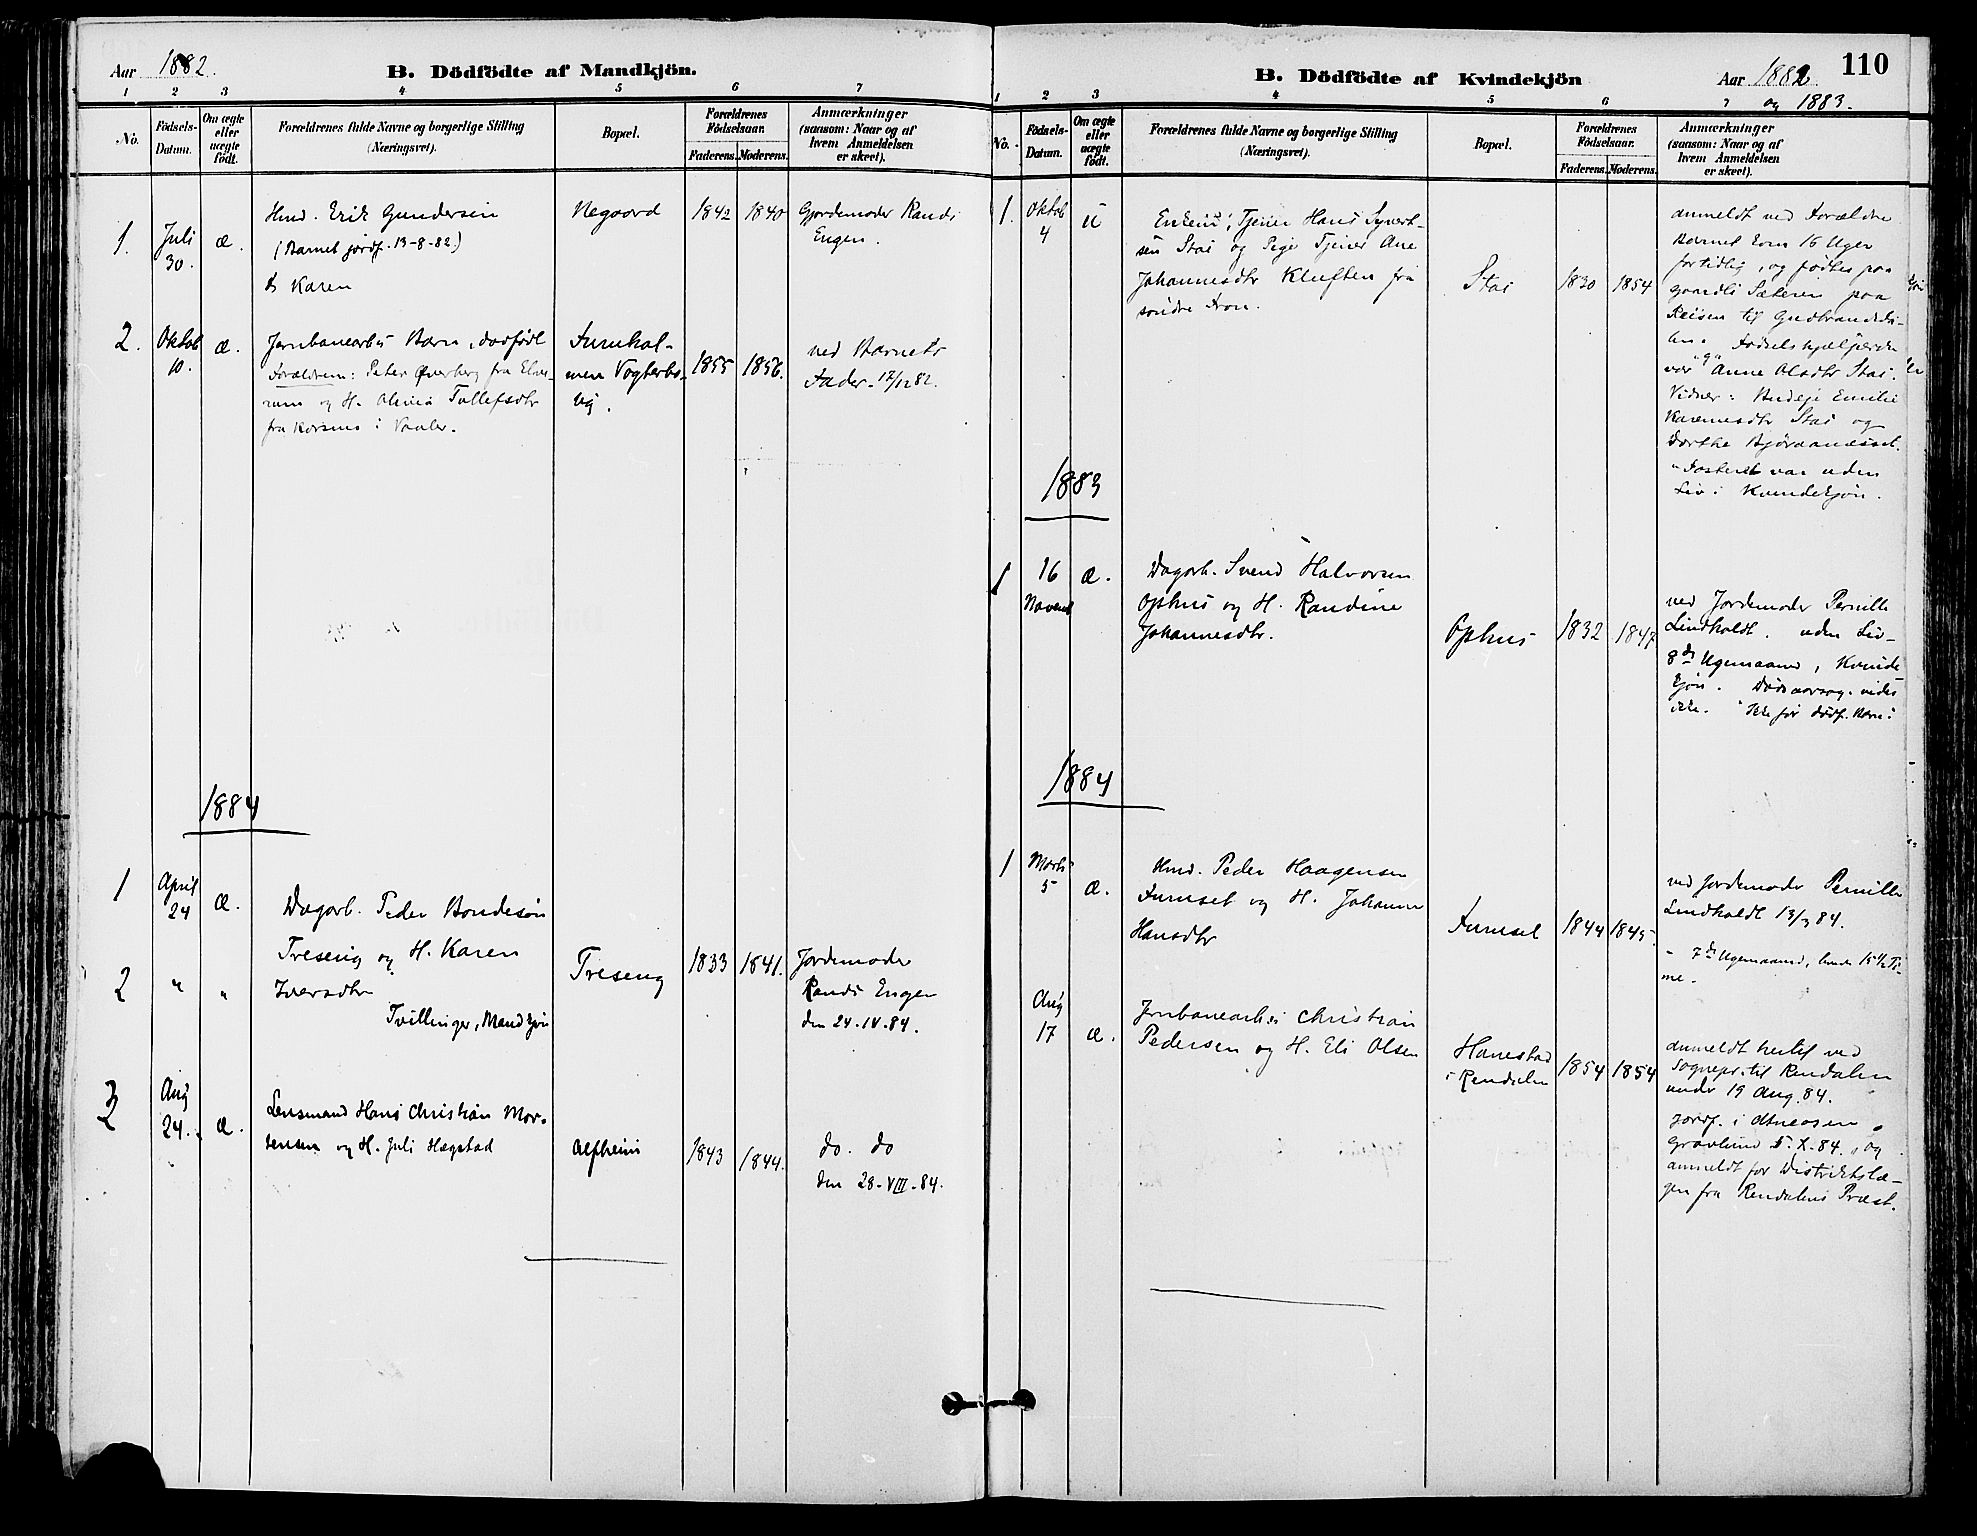 Aar 1882.
B. Dödfödte af Mandkjön.
1 2 3 4 5 6 7
No.
Födsels-Datum.
Om ægte eller uægte födt.
Forældrenes fulde Navne og borgerlige Stilling
(Næringsvei).
Bopæl.
Forældrenes Födselsaar.
Faderens. Moderens.
Anmærkninger
(saasom: Naar og af
hvem Anmeldelsen
er skeet).
1. Juli 30. æ.
Hmd. Erik Gundersen
(Barnet jordf. 13-8-82.)
Karen
Negaard 1842 1840
Gjordemoder Randi
Engen.
2. Oktob 10. æ.
Jernbanearb. Barn, dødfødt
Forældrene: Peter Øverberg fra Elve-
rum og H. Olivia Tollefsdtr
fra Korsmo i Vaaler.
Furukol-
men Vogterbo-
lig.
1855 1856.
ved Barnets
Fader 17/12 82.
1884
1 April 24 æ.
Dagarb. Peder Bondesøn
Treseng og H. Karen
Iversdtr
Tvillinger, Mandkjøn
2 " "
Treseng 1833 1841.
Jordemoder
Randi Engen
den 24-IV-84.
3 Aug 24. æ.
Lensmand Hans Christian Mor-
tensen og H. Juli Hægstad
Alfheim 1843 1844.
do. do
den 28-VIII-84.
110
B. Dödfödte af Kvindekjön
Aar 1882
og 1883.
1 2 3 4 5 6 7
No.
Födsels-Datum.
Om ægte eller uægte födt.
Forældrenes fulde Navne og borgerlige Stilling
(Næringsvei).
Bopæl.
Forældrenes Födselsaar.
Faderens. Moderens.
Anmærkninger
(saasom: Naar og af
hvem Anmeldelsen
er skeet).
1. Oktob 4 u
Enkem., Tjener Hans Syvert-
sen Stai og Pige Tjener Ane
Johannesdtr Kluften fra
søndre Fron.
Stai 1830 1854
anmeldt ved Forældre
Barnet kom 16 Uger
fortidlig, og fødtes paa
Sæteren paa
Reisen til Gudbrandsda-
len. Fødselshjælperske
var "g" Anne Olsdtr Stai.
Vidner: Budeje Emilie
Karenusdtr Stai og
Dorthe Bjøraanesset.
"Fosteret var uden
Liv i Kvindekjøn.
1883
1 16 Novemb æ.
Dagarb. Svend Halvorsen
Ophus og H. Randine
Johannesdtr.
Ophus 1832 1847
ved Jordemoder Pernille
Lindholdt. uden Liv-
8de Ugemaaned, Kvinde
kjøn. Dødsaarsag vides
ikke. Ikke før dødf. Børn.
1884
1 Marts 5 æ.
Hmd. Peder Haagensen
Furuset og H. Johanne
Hansdtr
Furuset 1844 1845.
ved Jordemoder Pernille
Lindholdt 13/3 84.
- 7de Ugemaaned, levede 15 1/2 Ti-
me.
Aug 17 æ.
Jernbanearb. Christian
Pedersen og H. Eli Olsen
Hanestad
i Rendalen
1854 1854
anmeldt hertil ved
Sognepr. til Rendalen
under 19 Aug. 84.
jordf. i Atneosen
Gravlund 5-X-84, og
anmeldt for Distriktslæ-
gen fra Rendalens Præst.